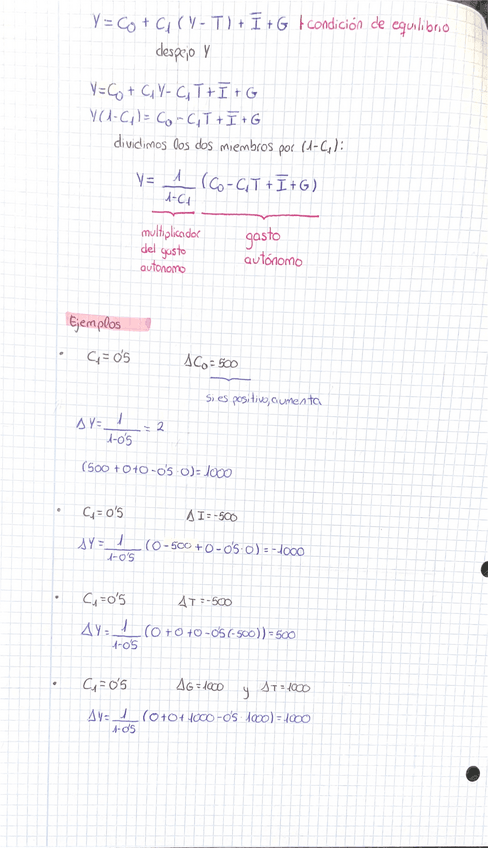 Y = C₀ + C₁ (Y - T) + Ī + G → condición de equilibrio
despejo Y
Y = C₀ + C₁Y - C₁T + Ī + G
Y(1-C₁) = C₀ - C₁T + Ī + G
dividimos los dos miembros por (1-C₁):
Y = 1/(1-C₁) (C₀ - C₁T + Ī + G)
multiplicador del gasto autonomo
gasto autónomo
Ejemplos
• C₁ = 0'5 ΔC₀ = 500
si es positivo, aumenta
ΔY = 1/(1-0'5) = 2
(500 + 0 + 0 - 0'5 · 0) = 1000
• C₁ = 0'5 ΔI = -500
ΔY = 1/(1-0'5) (0 - 500 + 0 - 0'5 · 0) = -1000
• C₁ = 0'5 ΔT = -500
ΔY = 1/(1-0'5) (0 + 0 + 0 - 0'5 (-500)) = 500
• C₁ = 0'5 ΔG = 1000 y ΔT = 1000
ΔY = 1/(1-0'5) (0 + 0 + 1000 - 0'5 · 1000) = 1000